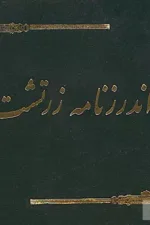 اندرزنامه زرتشت